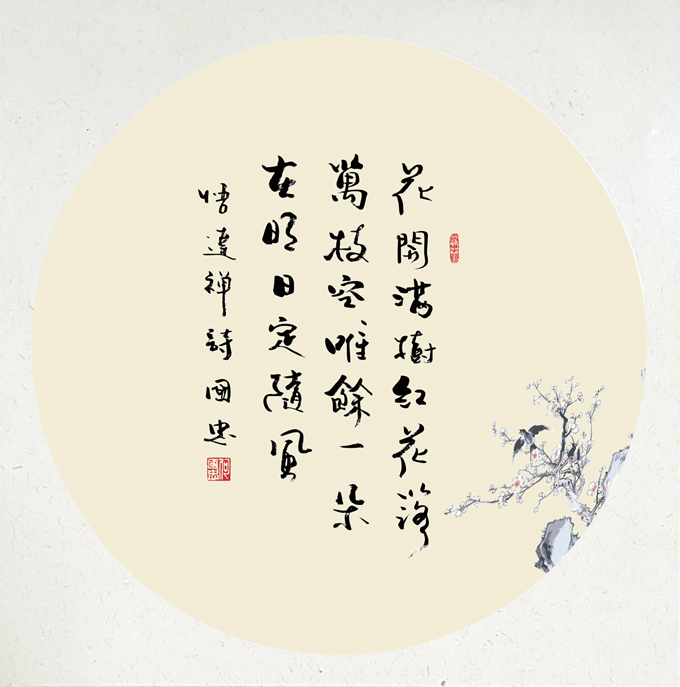 花開滿樹紅花落
萬枝空唯餘一朵
在明日定隨風
悟達禪詩國忠